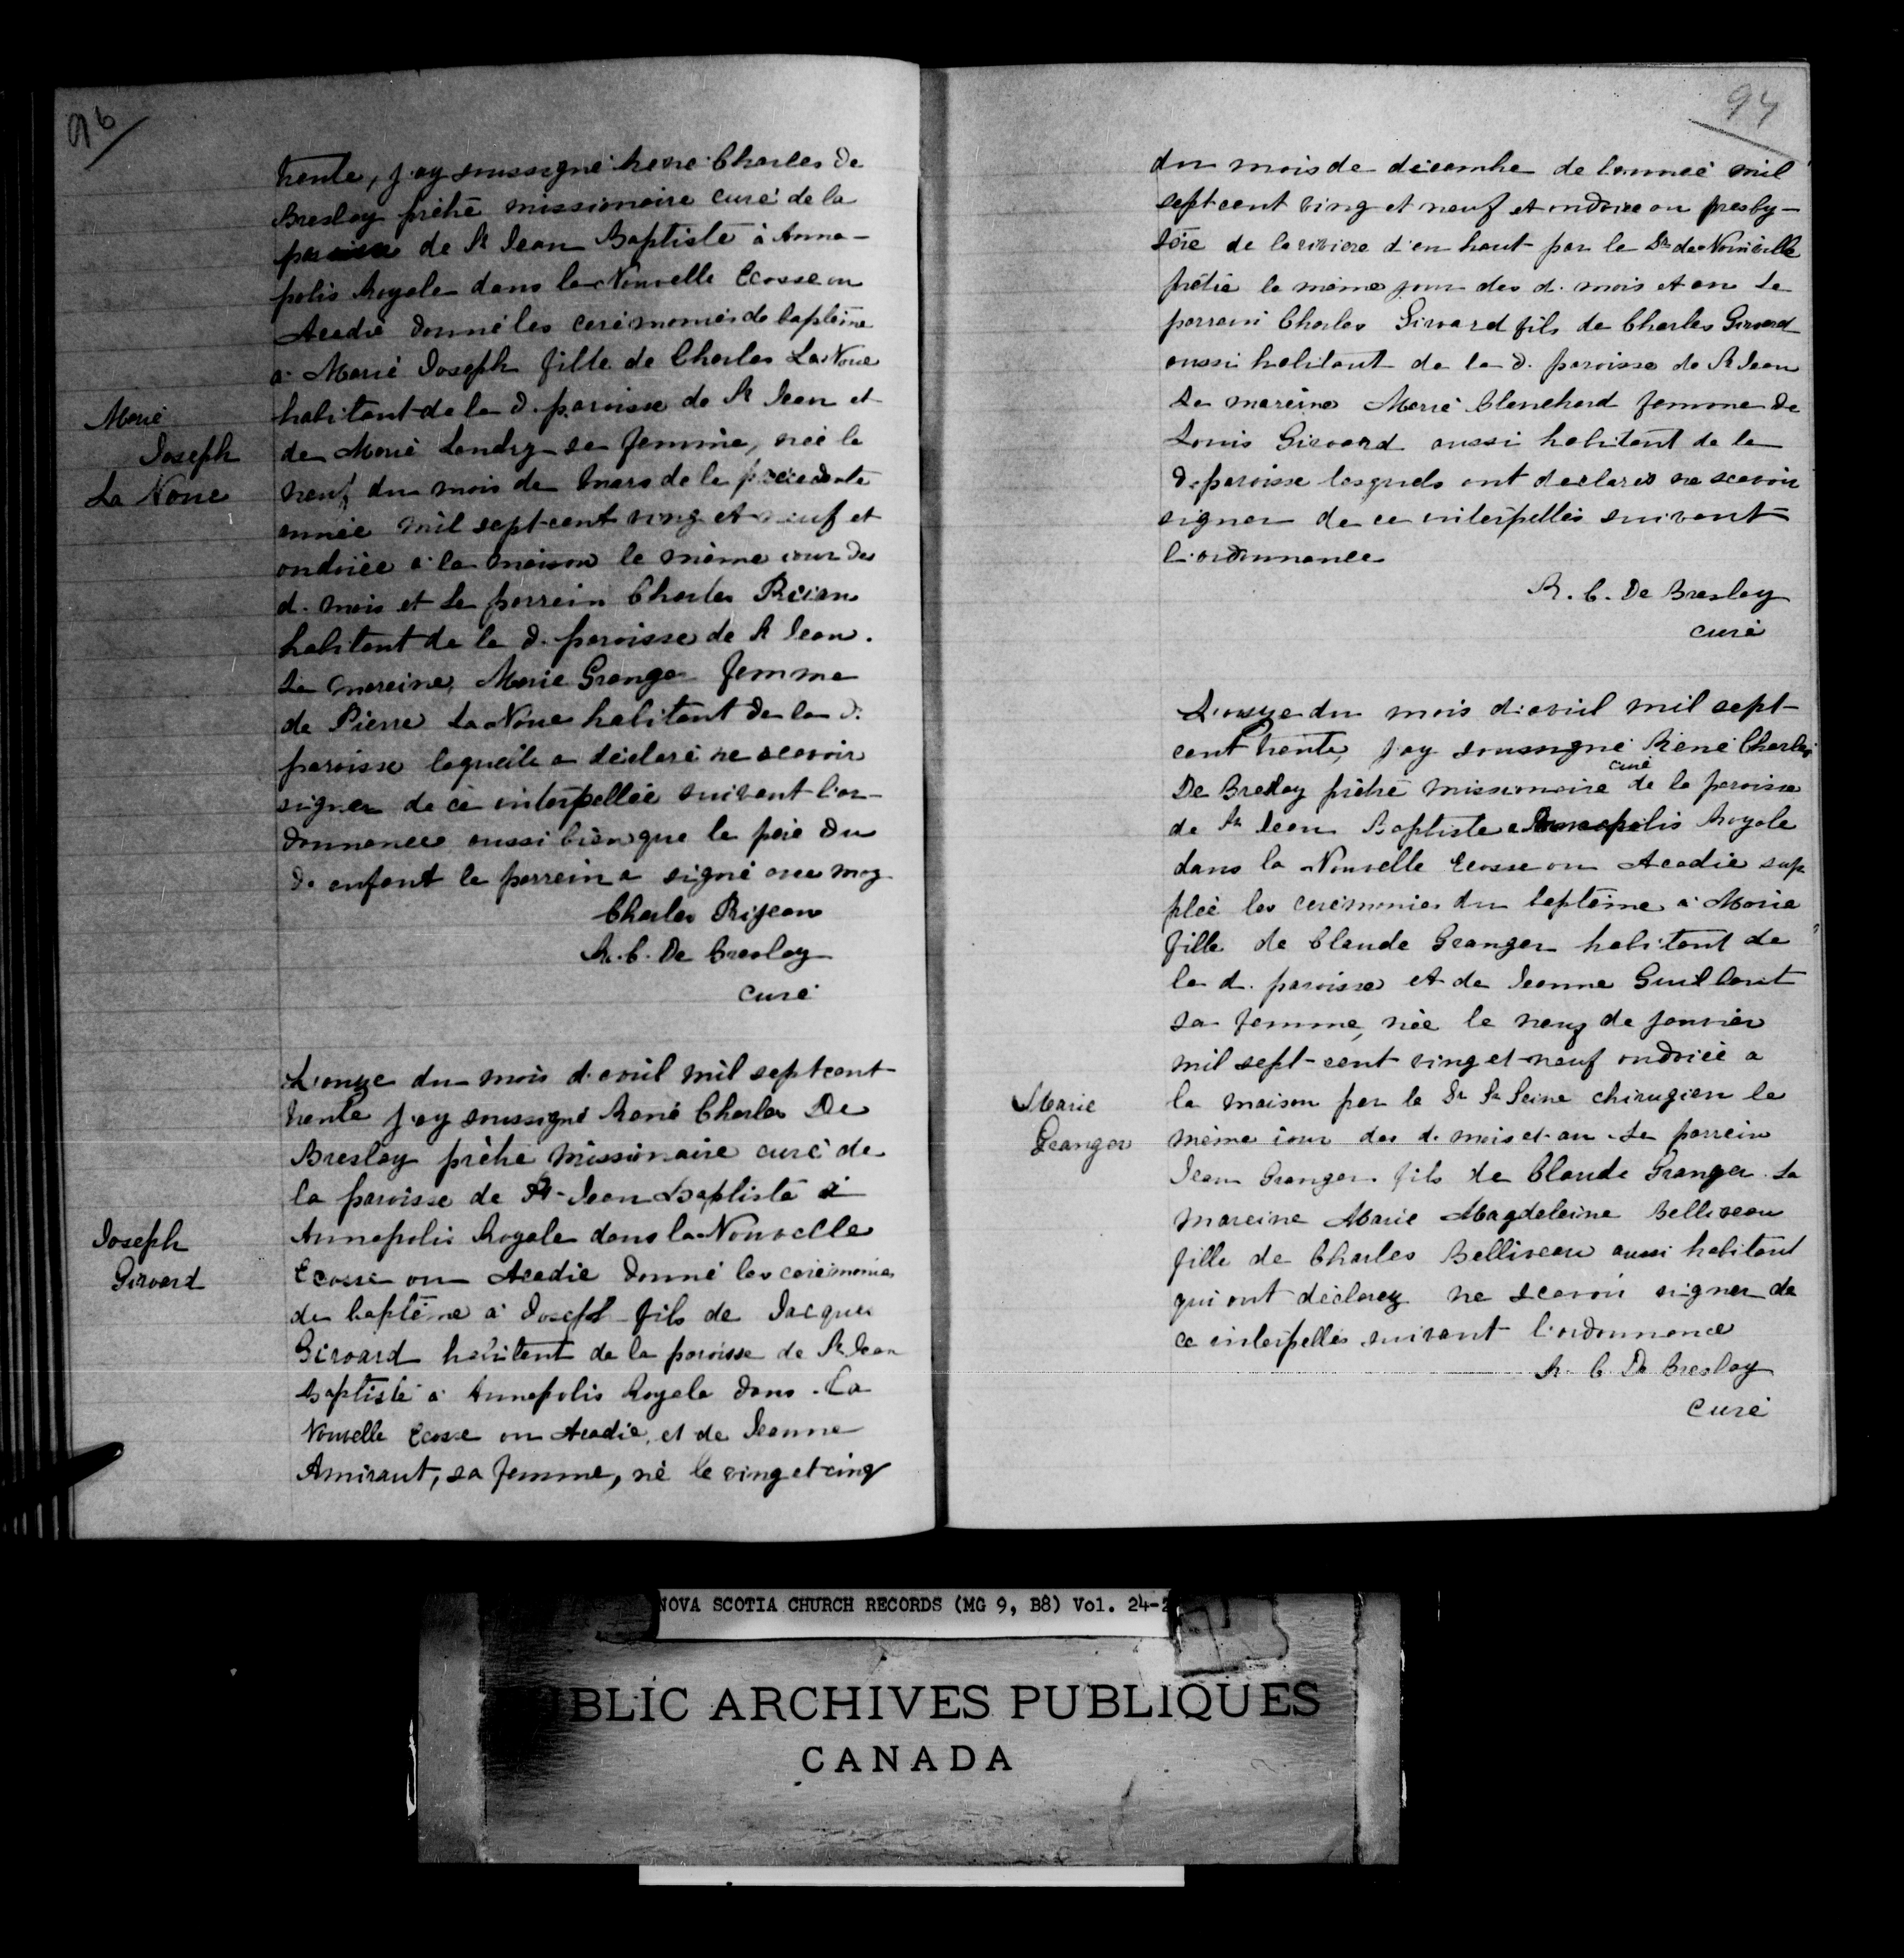 96
trente, j'ay soussigné René Charles de
Breslay prêtre missionaire curé de la
paroisse de St Jean Baptiste à Anna-
polis Royale dans la Nouvelle Ecosse ou
Acadie donné les ceremonies de baptême
a Marie Joseph fille de Charles La Noue
habitant de la d. paroisse de St Jean et
de Marie Landry sa femme, née le
neuf du mois de Mars de la précedente
année mil sept cent ving et neuf et
ondoiée à la maison le même iour des
d. mois et Le parrein Charles Reian
habitant de la d. paroisse de St Jean.
La mareine, Marie Granger femme
de Pierre La Noue habitant de la d.
paroisse laquelle a déclaré ne scavoir
signer de ce interpellée suivant l'or-
donnance aussi bien que le pere du
d. enfant le parrein a signé avec moy
Charles Rijean
R. C. De Breslay
curé
Marie
Joseph
La Noue
L'onze du mois d'avril mil sept cent
trente j'ay soussigné René Charles De
Breslay prêtre missionaire curé de
la paroisse de St Jean Baptiste à
Annapolis Royale dans la Nouvelle
Ecosse ou Acadie donné les ceremonies
du baptême à Joseph fils de Jacques
Girward habitent de la paroisse de St Jean
Baptiste à Annapolis Royale dans La
Nouvelle Ecosse ou Acadie, et de Jeanne
Amiraut, sa femme, né le ving et cinq
Joseph
Girward
94
du mois de décembre de l'année mil
sept cent ving et neuf et ondoié au presby-
tère de la riviere d'en haut par le Sr de
prêtre le même jour des d. mois et an Le
parrain Charles Girward fils de Charles Girward
aussi habitant de la d. paroisse de St Jean
La mareine Marie Blanchard femme de
Louis Girward aussi habitant de la
d. paroisse lesquels ont declarés ne scavoir
signer de ce interpellés suivant
l'ordonnance
R. C. De Breslay
curé
L'onze du mois d'avril mil sept-
cent trente, j'ay soussigné René Charles
De Breslay prêtre missionaire curé de la paroisse
de St Jean Baptiste a Annapolis Royale
dans la Nouvelle Ecosse ou Acadie sup
pleé les ceremonies du baptême a Marie
fille de Claude Granger habitant de
la d. paroisse et de Jeanne Guilbaut
sa femme, née le neuf de janvier
mil sept-cent ving et neuf ondoiée a
la maison par le Sr St Seine chirugien le
même iour des d. mois et an. Le parrein
Jean Granger fils de Claude Granger. La
mareine Marie Magdeleine Belliveau
fille de Charles Belliveau aussi habitant
qui ont déclarez ne scavoir signer de
ce interpellés suivant l'ordonnance
R. C. De Breslay
Curé
Marie
Granger
NOVA SCOTIA CHURCH RECORDS (MG 9, B8) Vol. 24-2
BLIC ARCHIVES PUBLIQUES
CANADA